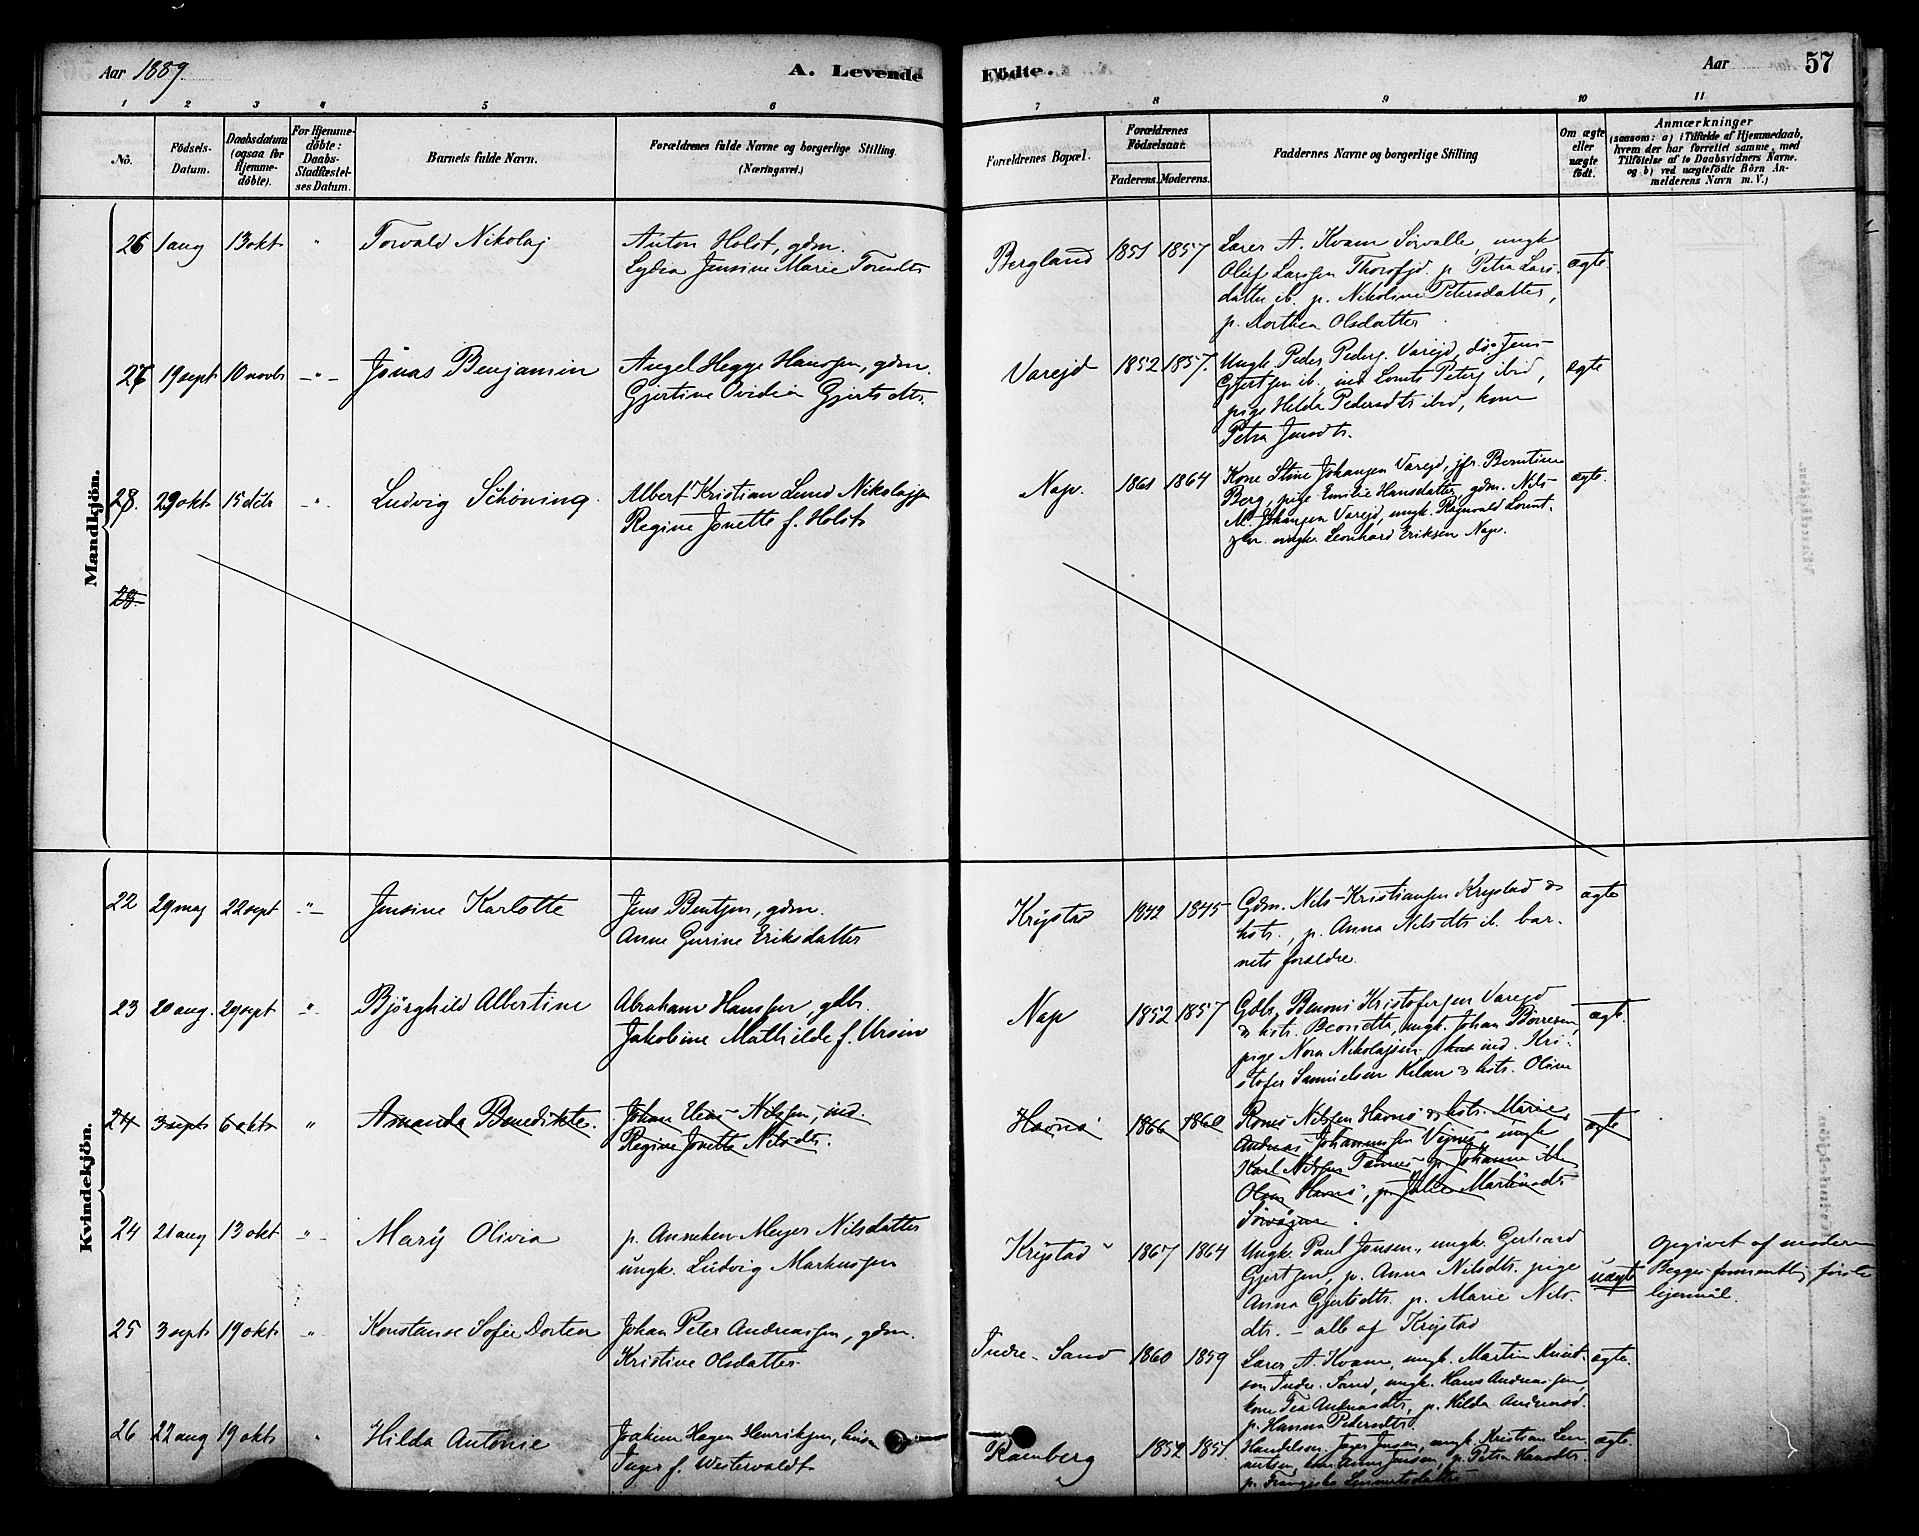 Aar 1889.
A. Levende
Födte.
Aar
57
1 2 3 4 5 6 7 8 9 10 11
No.
Födsels-
Datum.
Daabsdatum
(ogsaa for
Hjemme-
döbte).
For Hjemme-
döbte:
Daabs-
Stadfæstel-
ses Datum.
Barnets fulde Navn.
Forældrenes fulde Navne og borgerlige Stilling
(Næringsvei.)
Forældrenes Bopæl.
Forældrenes
Födselsaar.
Faderens. Moderens.
Faddernes Navne og borgerlige Stilling
Om ægte
eller
uægte
födt.
Anmærkninger
(saasom: a) i Tilfælde af Hjemmedaab,
hvem der har forrettet samme, med
Tilföielse af to Daabsvidners Navne.
og b) ved uægtefödte Börn An-
melderens Navn m. V.)
Mandkjön.
26 1 aug 13 okt " Torvald Nikolaj
Anton Holst, gdm.
Lydia Jensine Marie Torendts
Bergland 1851 1857
Lærer A. Kvam Sørvalle, ungk
Oluf Larssen Thorsfjd. p. Petra Lars-
datter ib. p. Nikoline Petersdatter,
p. Dorthea Olsdatter
ægte
27 19 sept 10 novbr -"- Jonas Benjamin
Angel Hegge Hanssen, gdm.
Gjertine Ovidia Gjertsdtr.
Varejd 1852 1857.
Ungk. Peder Peders. Varejd, do Jens
Gjertsen ib., ind Lornts Peters ibid,
pige Hilda Pedersdtr ibid, kone
Petra Jensdtr.
ægte
28. 29 okt 15 dcbr -"- Ludvig Schöning.
Albert Kristian Lund Nikolajsen
Regine Jonette f. Holst
Nap. 1861 1864
Kone Stine Johansen Varejd, jfr. Berntine
Berg, pige Emilie Hansdatter, gdm. Nils
M. Johansen Varejd, ungk. Ragnvald Lornt-
zen. ungk. Leonhard Eriksen Nap.
ægte.
Kvindekjön.
22 29 maj 22 sept -"- Jensine Karlotte
Jens Bentsen, gdm.
Anne Gurine Eriksdatter
Krystad 1842 1845
Gdm. Nils Kristiansen Krystad &
hstr., p. Anna Nilsdtr ib. bar-
nets forældre.
ægte
23 20 aug. 29 sept -"- Björghild Albertine
Abraham Hanssen, gdbr.
Jakobine Mathilde f. Ursin
Nap 1852 1857
Gdbr. Benoni Kristofersen Varejd
& hstr. Beorietta, ungk. Johan Börresen,
pige Nora Nikolajsen, ind. Kri-
stofer Samuelsen Kilan & hstr. Oline
ægte.
24 3 sept 6 okt " Amanda Benedikte.
Johan Elias Nilssen, ind.
Regine Jonette Nilsdtr.
Havnö 1866 1860
Rones Nilssen Havnö & hstr. Marie,
Andreas Johannessen Vejnes, ungk
Karl Nilssen Tennes, p. Johanne M.
Olsen Havnö, p. Julie Martinsdtr
Sörvågen.
ægte
24 21 aug 13 okt -"- Marÿ Olivia
p. Anneken Meyer Nilsdatter
ungk. Ludvig Markussen
Krystad 1867 1864
Ungk. Paul Jonsen, ungk. Gerhard
Gjertsen, p. Anna Nilsdtr. pige
Anna Gjertsdtr. p. Marie Nils-
dtr. - alle af Krystad
uægte
Opgivet af moderen
Begges formentlig første
lejermål.
25 3 sept 19 okt " Konstanse Sofie Dortea
Johan Peter Andreassen, gdm.
Kristine Olsdatter
Indre-Sand 1860 1859
Lærer A. Kvam, ungk. Martin Knut-
sen Indre-Sand, ungk. Hans Andreassen
kone Tea Andreasdtr, p. Hilda Andreasd.
p. Hanna Pedersdtr
ægte.
26 22 aug 19 okt " Hilda Antonie
Joakim Hagen Henriksen,
Inger f. Westervaldt
Ramberg 1852 1851
Handelsm. Jensen, ungk. Kristian Len-
nartsen, Jensen, p. Petra Hansdtr.
p. Fransiska Lennertsdatter
ægte.